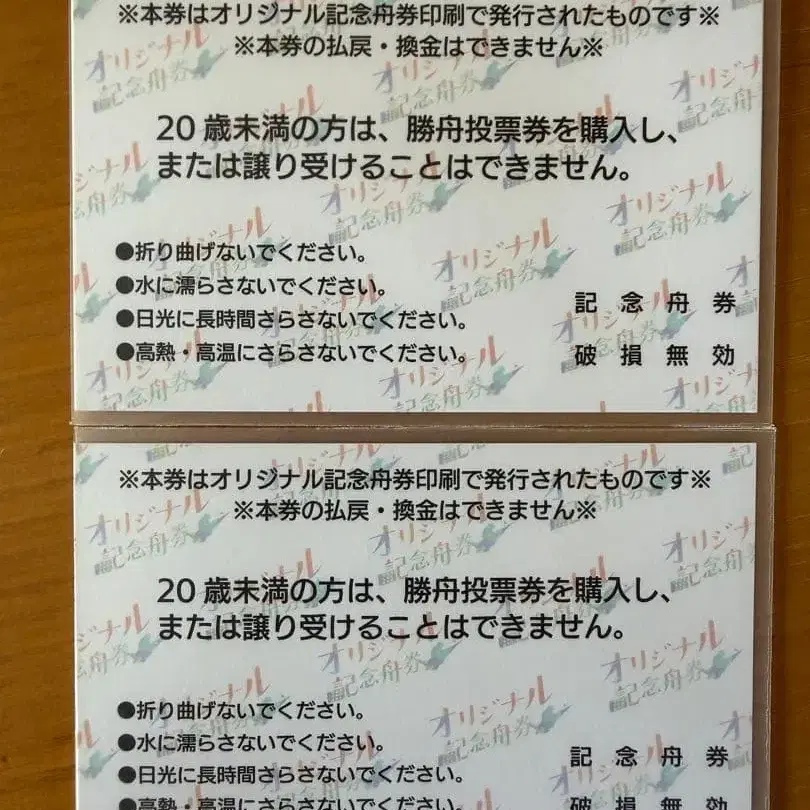 ※本券はオリジナル記念舟券印刷で発行されたものです※
※本券の払戻・換金はできません※
20歳未満の方は、勝舟投票券を購入し、
または譲り受けることはできません。
●折り曲げないでください。
●水に濡らさないでください。
●日光に長時間さらさないでください。
●高熱・高温にさらさないでください。
記念舟券
破損無効
※本券はオリジナル記念舟券印刷で発行されたものです※
※本券の払戻・換金はできません※
20歳未満の方は、勝舟投票券を購入し、
または譲り受けることはできません。
●折り曲げないでください。
●水に濡らさないでください。
●日光に長時間さらさないでください。
●高熱・高温にさらさないでください。
記念舟券
破損無効
オリジナル
記念舟券